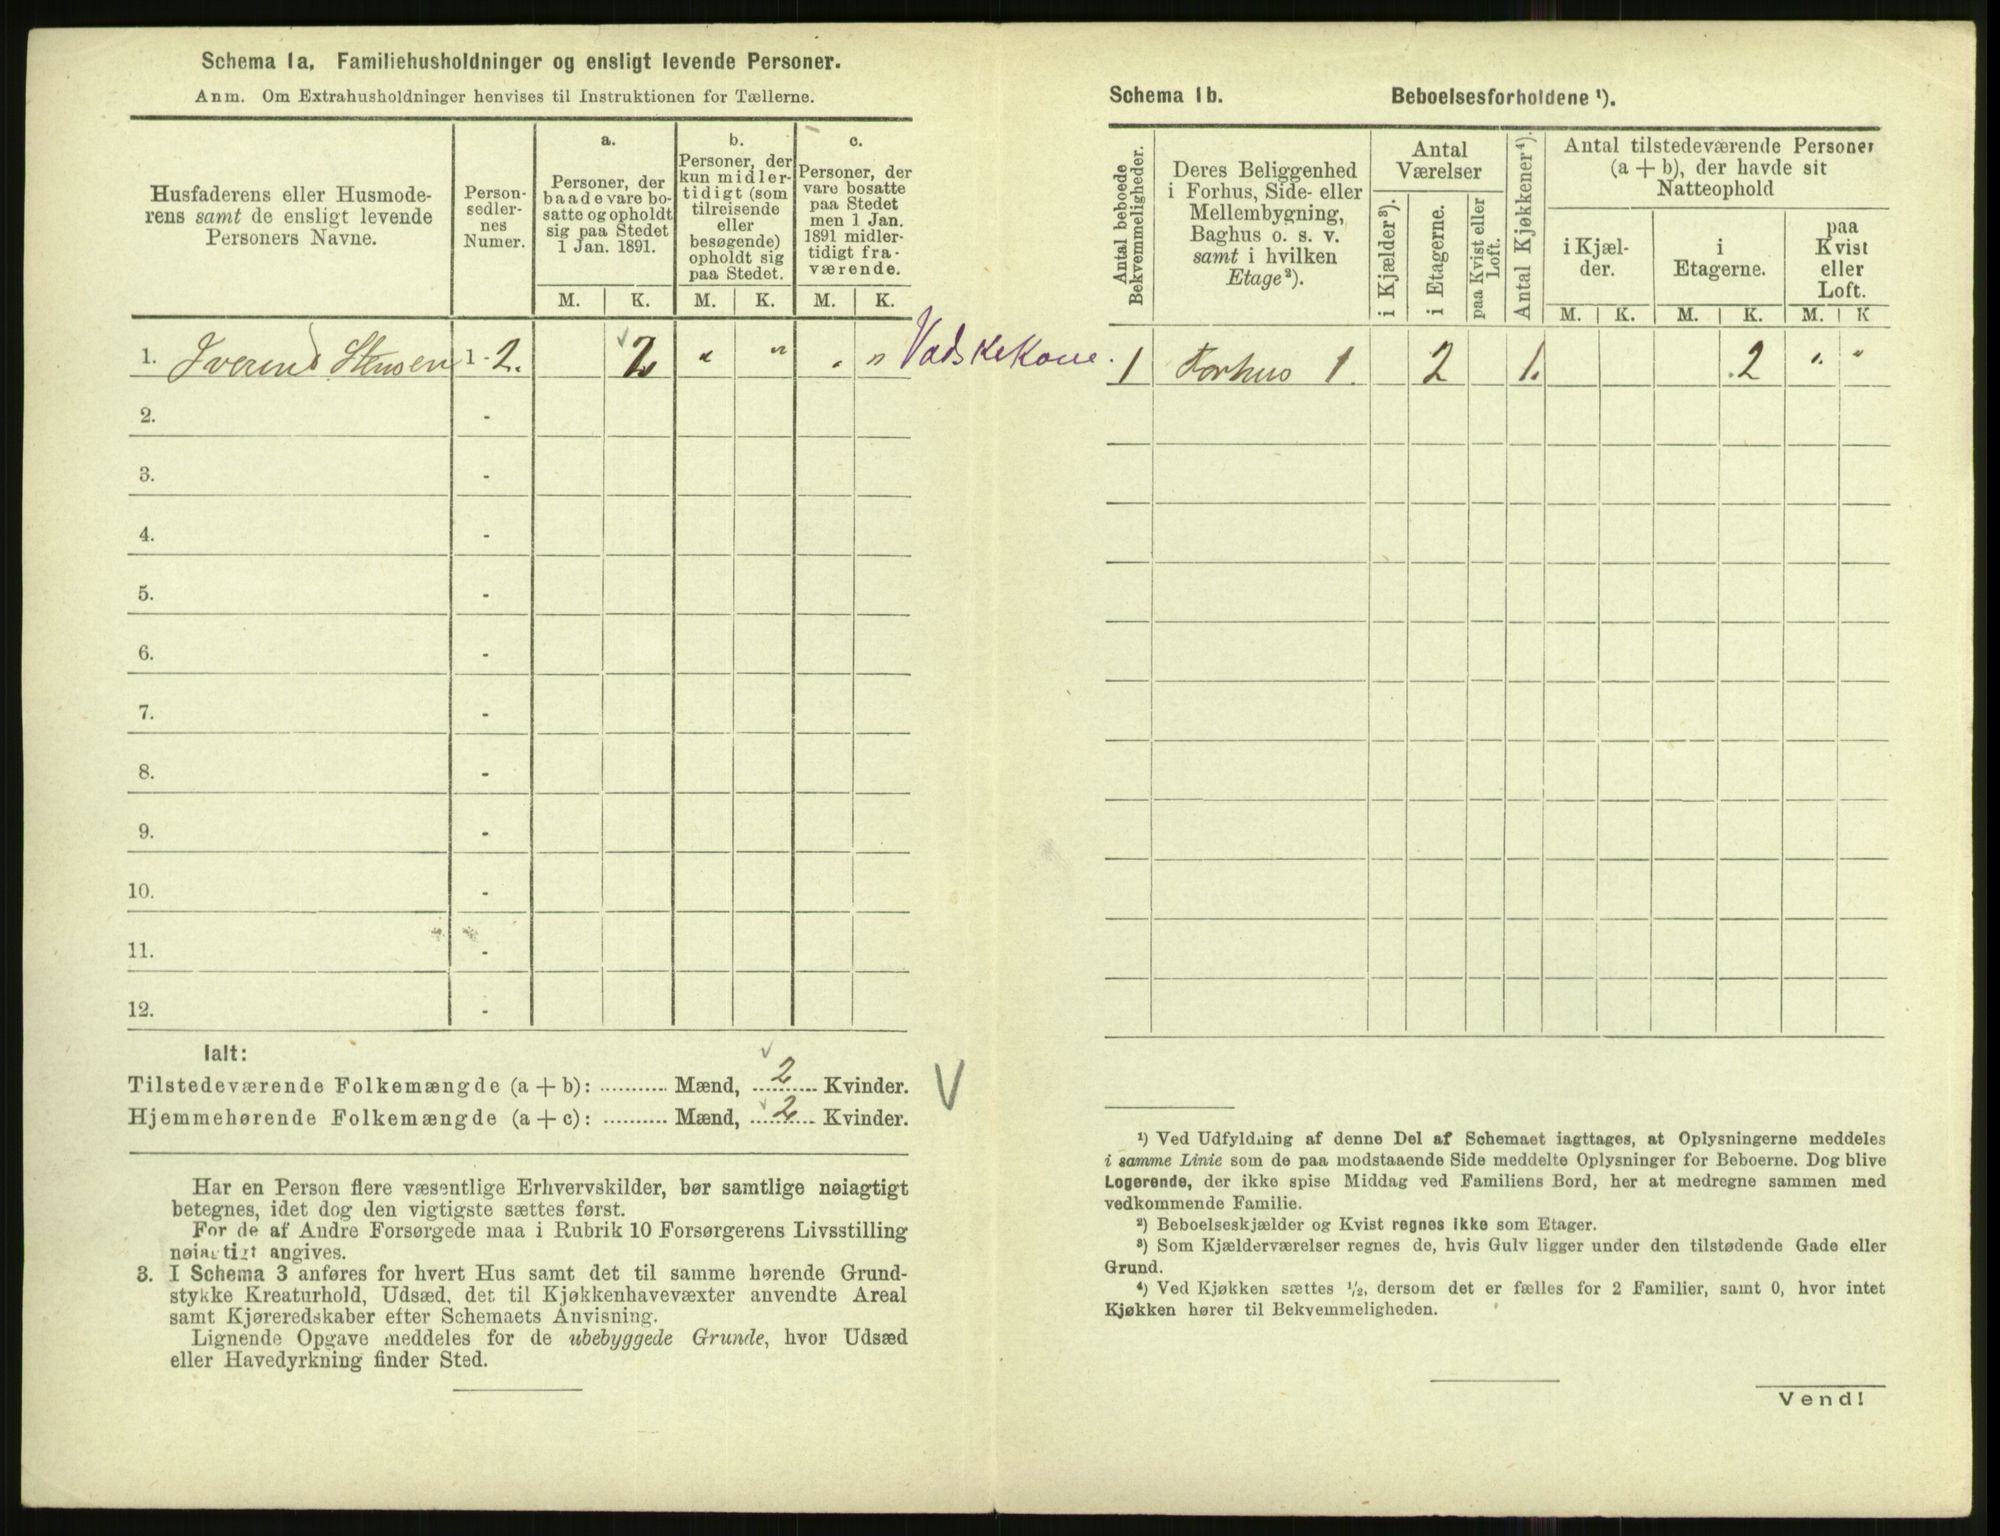 Schema 1a. Familiehusholdninger og ensligt levende Personer.
Anm. Om Extrahusholdninger henvises til Instruktionen for Tællerne.
Husfaderens eller Husmode-
rens samt de ensligt levende
Personers Navne.
Person-
sedler-
nes
Numer.
a.
Personer, der
baade vare bo-
satte og opholdt
sig paa Stedet
1 Jan. 1891.
b.
Personer, der
kun midler-
tidigt (som
tilreisende
eller
besøgende)
opholdt sig
paa Stedet.
c.
Personer, der
vare bosatte
paa Stedet
men 1 Jan.
1891 midler-
tidigt fra-
værende.
M. K. M. K. M. K.
1. Iverine Stensen 1 - 2. 2 " " " " Vadskekone.
2. -
3. -
4. -
5. -
6. -
7. -
8. -
9. -
10. -
11. -
12. -
Ialt:
Tilstedeværende Folkemængde (a + b): ........... Mænd, 2 Kvinder.
Hjemmehørende Folkemængde (a + c): ........... Mænd, 2 Kvinder.
V
Har en Person flere væsentlige Erhvervskilder, bør samtlige nøiagtigt
betegnes, idet dog den vigtigste sættes først.
For de af Andre Forsørgede maa i Rubrik 10 Forsørgerens Livsstilling
nøiagtigt angives.
3. I Schema 3 anføres for hvert Hus samt det til samme hørende Grund-
stykke Kreaturhold, Udsæd, det til Kjøkkenhavevæxter anvendte Areal
samt Kjøreredskaber efter Schemaets Anvisning.
Lignende Opgave meddeles for de ubebyggede Grunde, hvor Udsæd
eller Havedyrkning finder Sted.
Schema 1b. Beboelsesforholdene ¹).
Antal beboede
Bekvemmeligheder.
Deres Beliggenhed
i Forhus, Side- eller
Mellembygning,
Baghus o. s. v.
samt i hvilken
Etage²).
Antal
Værelser
i Kjælder³).
i Etagerne.
paa Kvist eller
Loft.
Antal Kjøkkener⁴).
Antal tilstedeværende Personer
(a + b), der havde sit
Natteophold
i Kjæl-
der.
i
Etagerne.
paa
Kvist
eller
Loft.
M. K. M. K. M. K
1 Forhus 1. 2 1. 2 " "
¹) Ved Udfyldning af denne Del af Schemaet iagttages, at Oplysningerne meddeles
i samme Linie som de paa modstaaende Side meddelte Oplysninger for Beboerne. Dog blive
Logerende, der ikke spise Middag ved Familiens Bord, her at medregne sammen med
vedkommende Familie.
²) Beboelseskjælder og Kvist regnes ikke som Etager.
³) Som Kjælderværelser regnes de, hvis Gulv ligger under den tilstødende Gade eller
Grund.
⁴) Ved Kjøkken sættes ¹/₂, dersom det er fælles for 2 Familier, samt 0, hvor intet
Kjøkken hører til Bekvemmeligheden.
Vend!